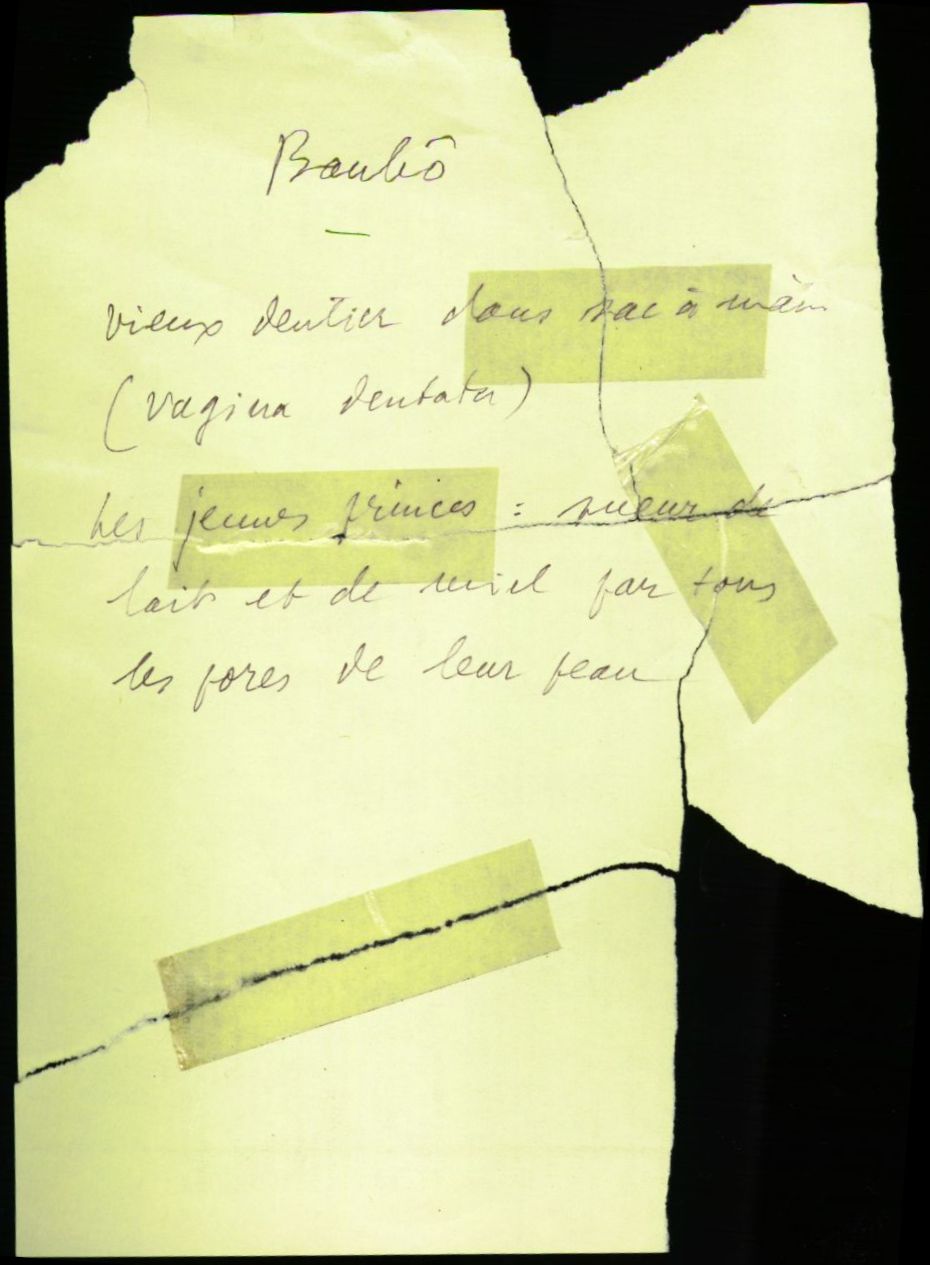 Baubô
vieux dentier dans sac à main
(vagina dentata)
Les jeunes princes : sueur de
lait et de miel par tous
les pores de leur peau